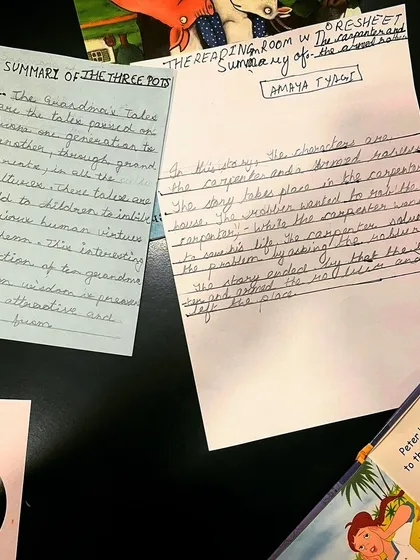 SUMMARI OF THE THREE POTS
The Grandma's Tales
are the tales passed on
one generation to
another, through grand
in all the
cultures. These tales are
told to children to
human virtues
them. This interesting
of ten grandma
wisdom is
attractive and
from
THE READING ROOM WORESHEET
Summary of:- The carpenter and
the armed
AMAYA TYAGI
In this story, The characters are
the carpenter and a armed
The story takes place in the carpenter
house. The robber wanted to
carpenter. While the carpenter
to save his life. The carpenter
the problem by asking the robber
The story ended by that the
and armed the and
left the place.
Peter
to th